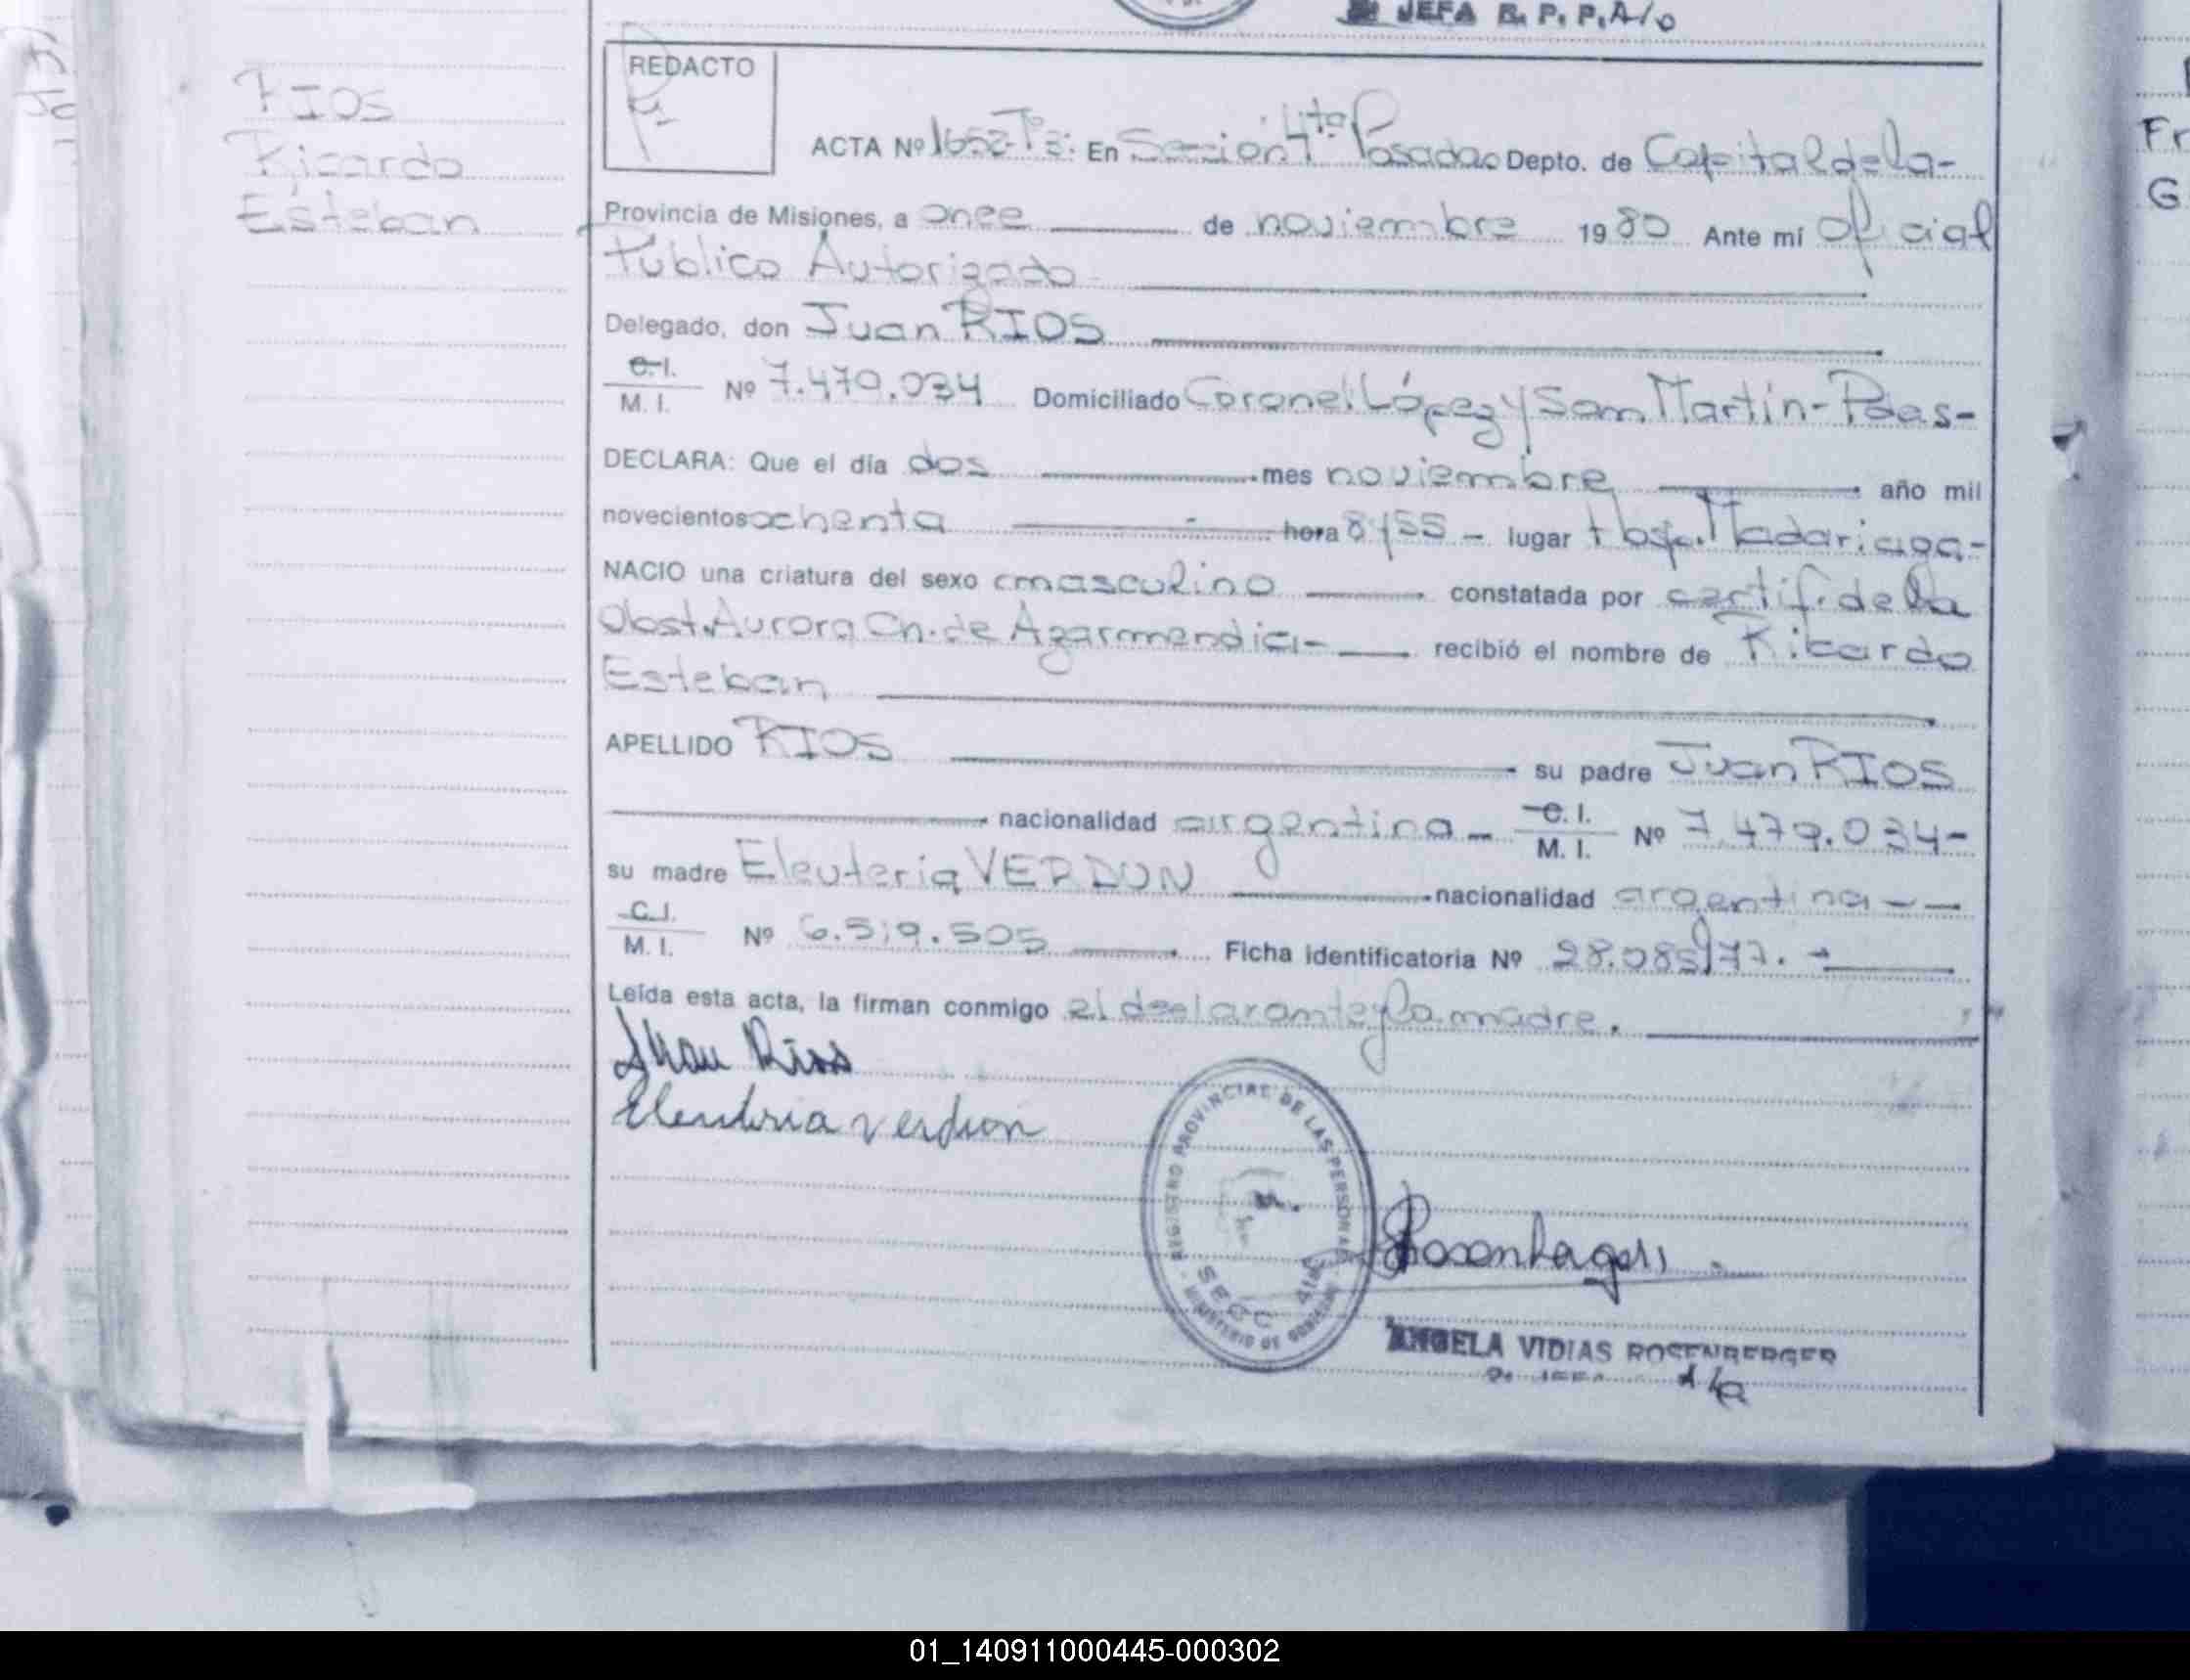 JEFA R. P. P. A/o
RIOS
Ricardo
Esteban
REDACTO
ACTA Nº 1652-Tº3: En Sección 4ta Posadas Depto. de Capital de la-
Provincia de Misiones, a once de noviembre 1980 Ante mí Oficial
Público Autorizado
Delegado, don Juan RIOS
C.I.
M. I. Nº 7.479.034 Domiciliado Coronel López y San Martín-Pdas-
DECLARA: Que el día dos mes noviembre año mil
novecientos ochenta hora 8y55 - lugar Hosp. Madariaga-
NACIO una criatura del sexo masculino constatada por certif. de la
Obst. Aurora Ch. de Azarmendia- recibió el nombre de Ricardo
Esteban
APELLIDO RIOS su padre Juan RIOS
nacionalidad argentina - C. I.
M. I. Nº 7.479.034-
su madre Eleuteria VERDUN nacionalidad argentina - -
C.I.
M. I. Nº 6.519.505 Ficha identificatoria Nº 28.085/77. -
Leída esta acta, la firman conmigo el declarante y la madre.
Juan Rios
Eleuteria verdun
REGISTRO PROVINCIAL DE LAS PERSONAS
SECC 4ta
MINISTERIO DE GOBIERNO
ANGELA VIDIAS ROSENBERGER
01_140911000445-000302